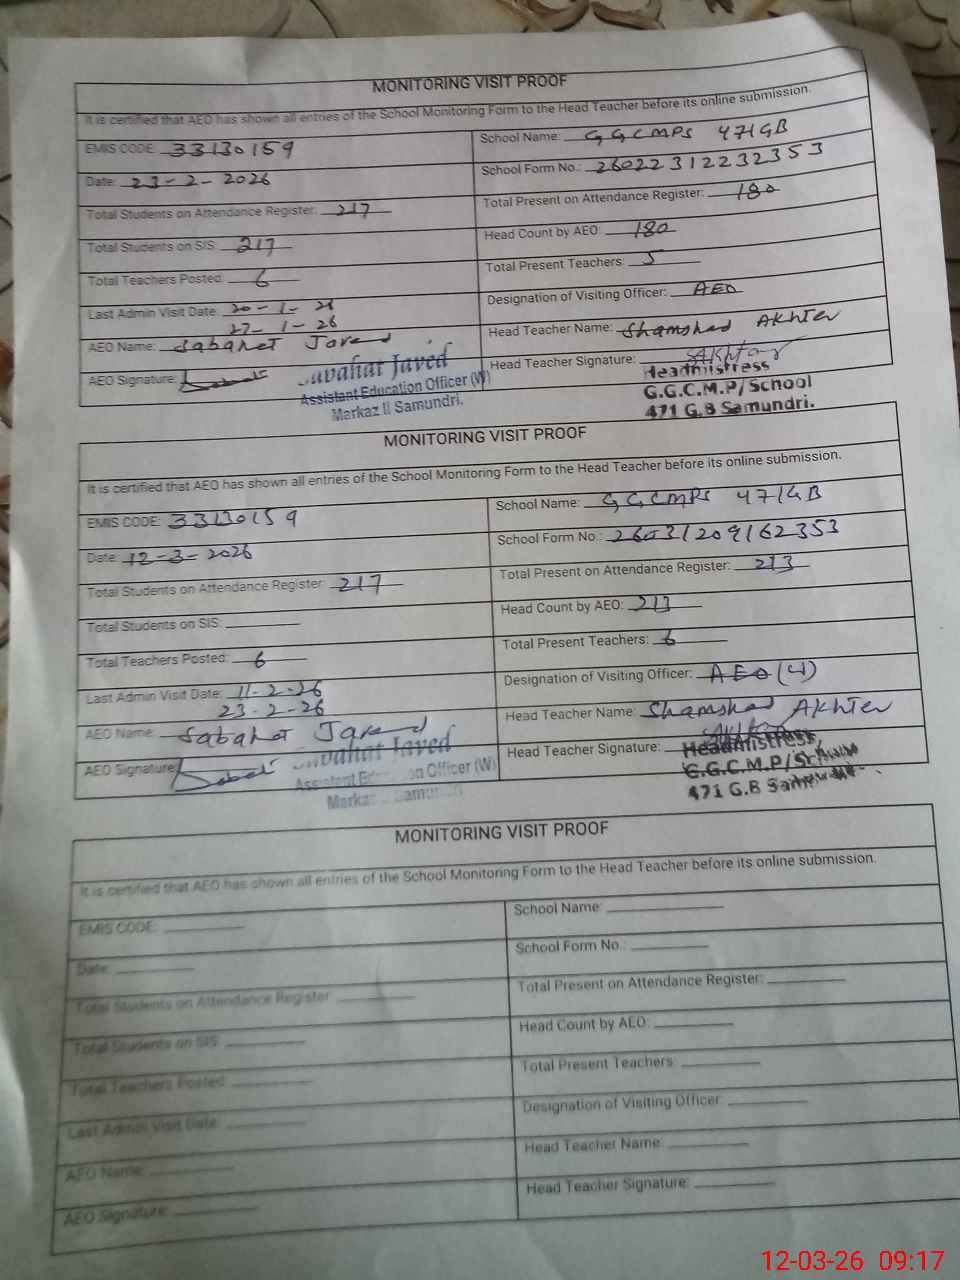 MONITORING VISIT PROOF
It is certified that AEO has shown all entries of the School Monitoring Form to the Head Teacher before its online submission.
EMIS CODE: 33130159
School Name: GGCMPS 471GB
Date: 23-2-2026
School Form No.: 26022312232353
Total Students on Attendance Register: 217
Total Present on Attendance Register: 180
Total Students on SIS: 217
Head Count by AEO: 180
Total Teachers Posted: 6
Total Present Teachers: 5
Last Admin Visit Date: 20-1-26
27-1-26
Designation of Visiting Officer: AEO
AEO Name: Sabahat Javed
Head Teacher Name: Shamshad Akhter
AEO Signature:
Head Teacher Signature: SAkhtar
Javed
Assistant Education Officer (W)
Markaz II Samundri.
Headmistress
G.G.C.M.P/School
471 G.B Samundri.
MONITORING VISIT PROOF
It is certified that AEO has shown all entries of the School Monitoring Form to the Head Teacher before its online submission.
EMIS CODE: 33130159
School Name: GGCMPS 471GB
Date: 12-3-2026
School Form No.: 26031209162353
Total Students on Attendance Register: 217
Total Present on Attendance Register: 213
Total Students on SIS:
Head Count by AEO: 213
Total Teachers Posted: 6
Total Present Teachers: 6
Last Admin Visit Date: 11-2-26
23-2-26
Designation of Visiting Officer: AEO (4)
AEO Name: Sabahat Javed
Head Teacher Name: Shamshad Akhter
AEO Signature:
Head Teacher Signature:
Javed
Assistant Officer (W)
Headmistress
G.G.C.M.P/
471 G.B
MONITORING VISIT PROOF
It is certified that AEO has shown all entries of the School Monitoring Form to the Head Teacher before its online submission.
EMIS CODE:
School Name:
Date:
School Form No.:
Total Students on Attendance Register:
Total Present on Attendance Register:
Total Students on SIS:
Head Count by AEO:
Total Teachers Posted:
Total Present Teachers:
Last Admin Visit Date:
Designation of Visiting Officer:
AEO Name:
Head Teacher Name:
AEO Signature:
Head Teacher Signature:
12-03-26 09:17